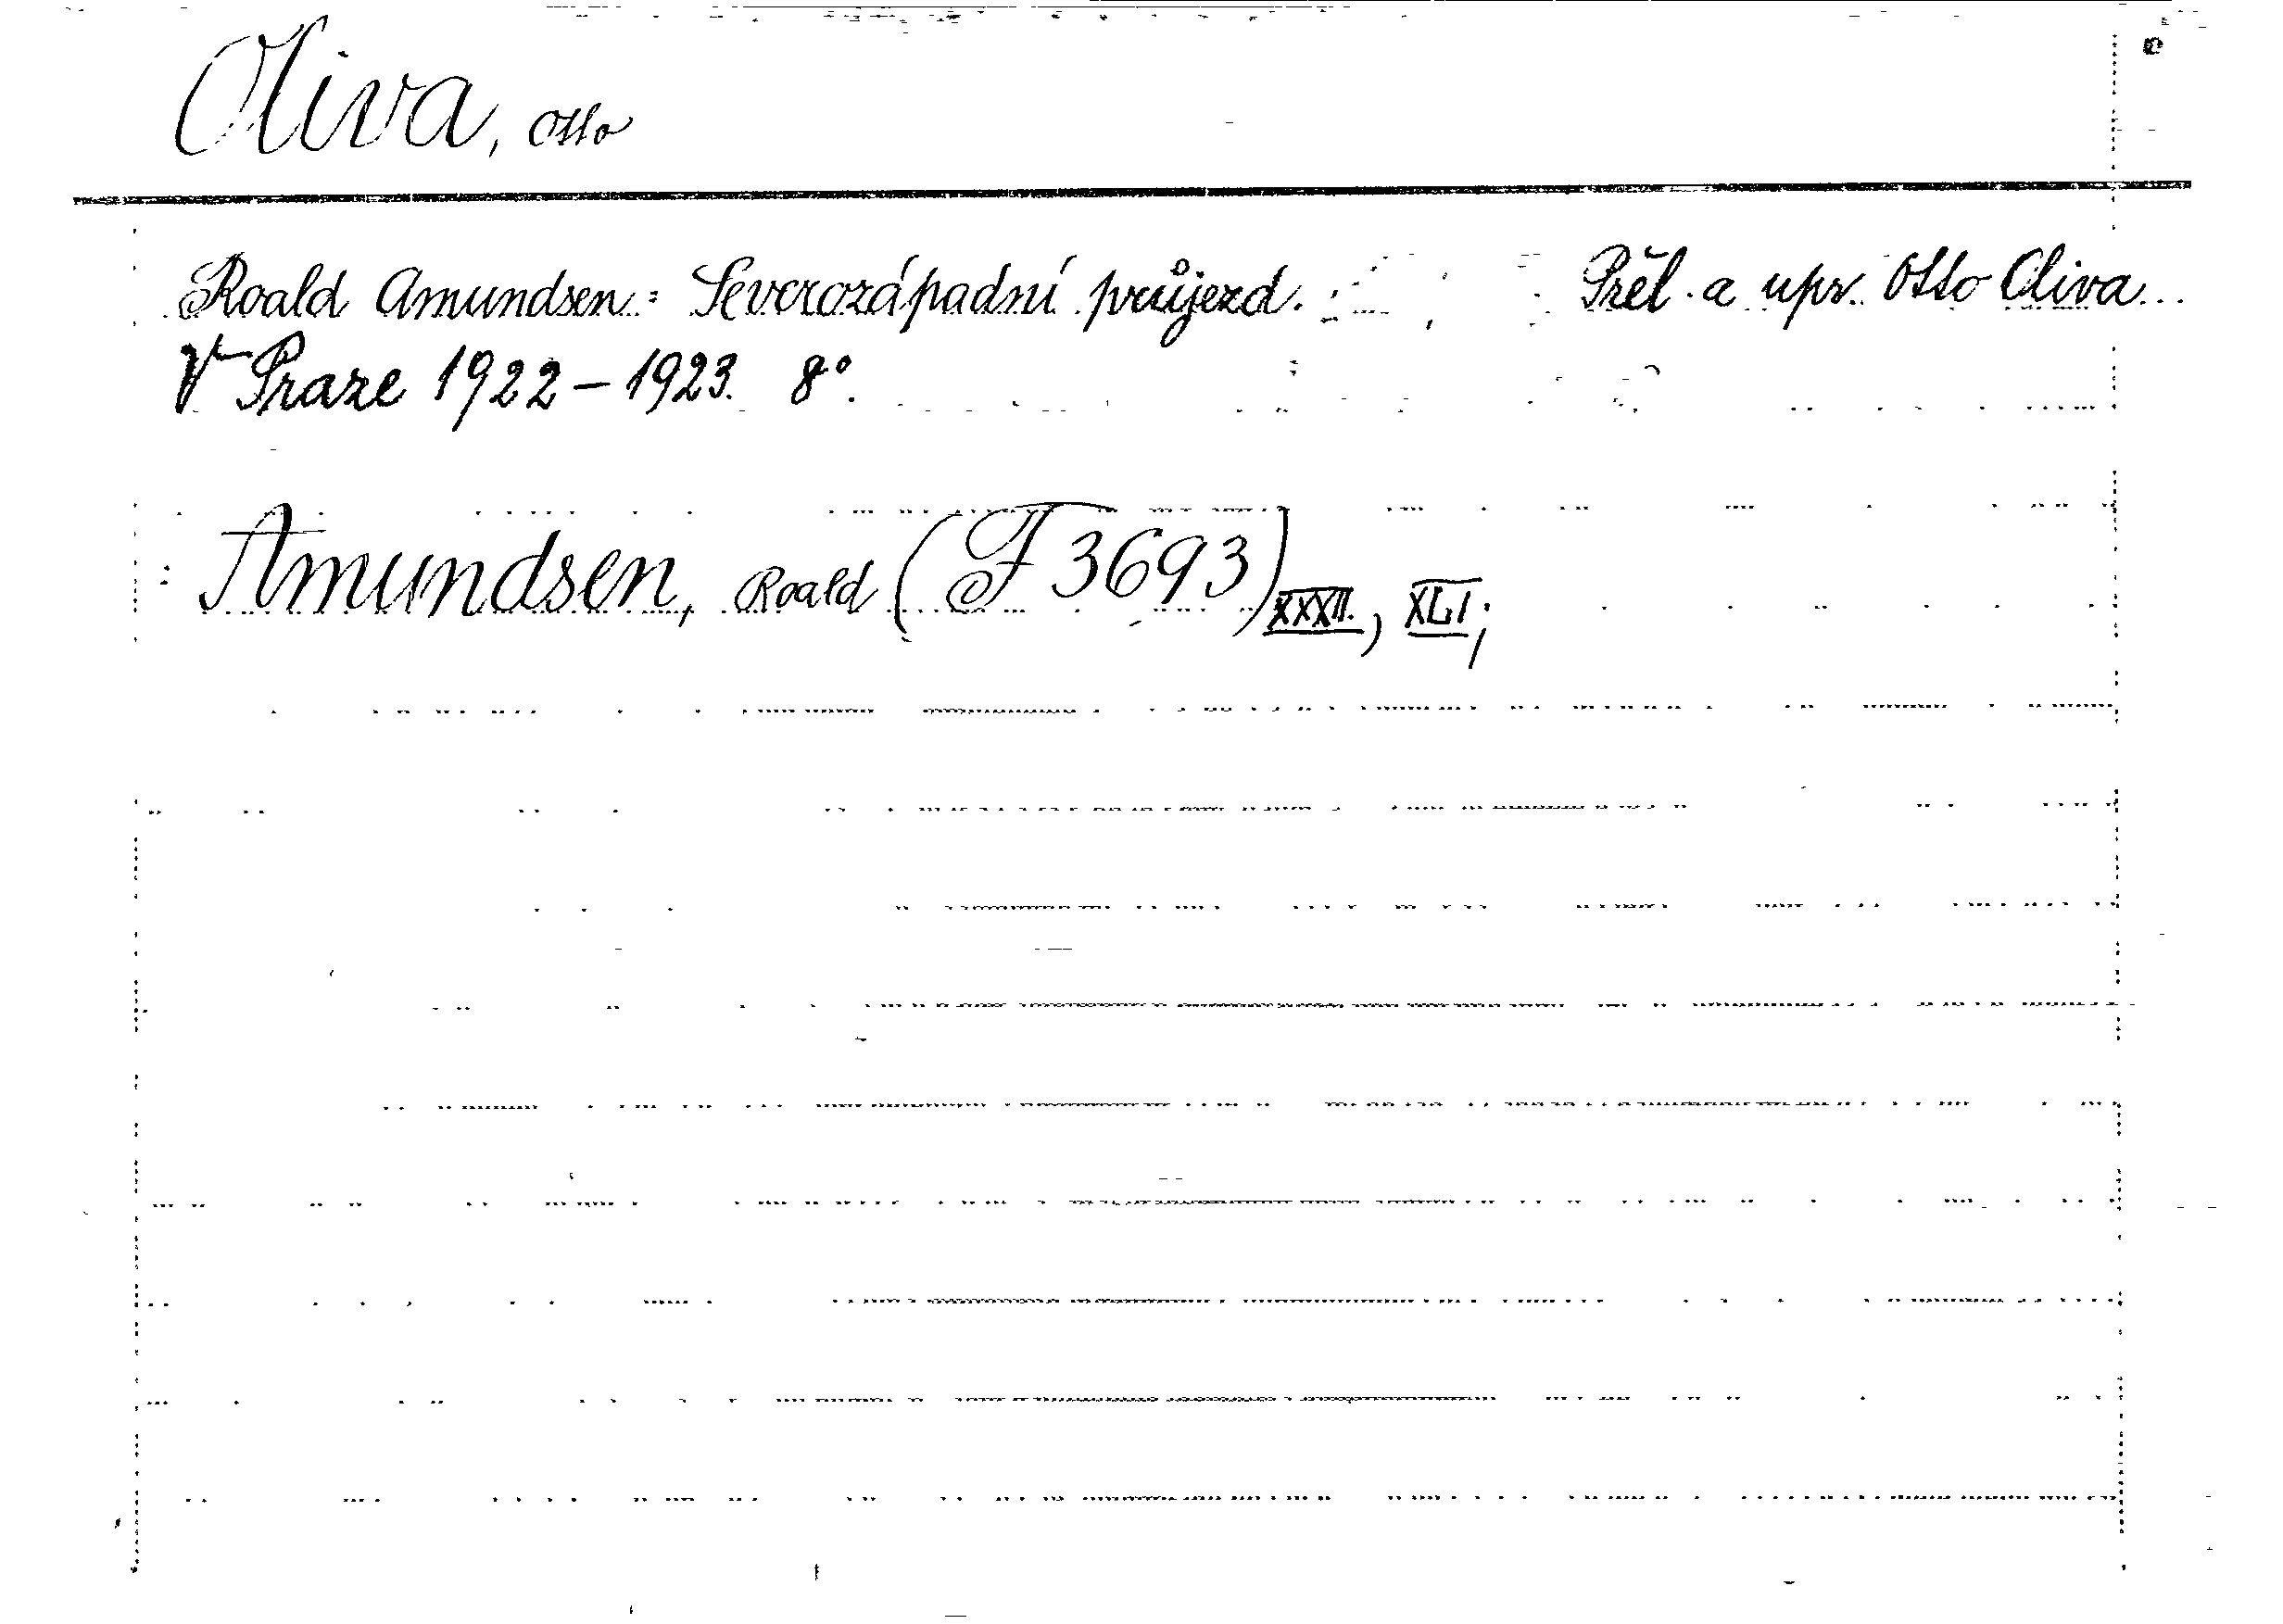 Oliva, Otto
Roald Amundsen: Severozápadní průjezd. Přel. a upr. Otto Oliva...
V Praze 1922-1923. 8°.
Amundsen, Roald (F 3693) XXXII., XLI.;